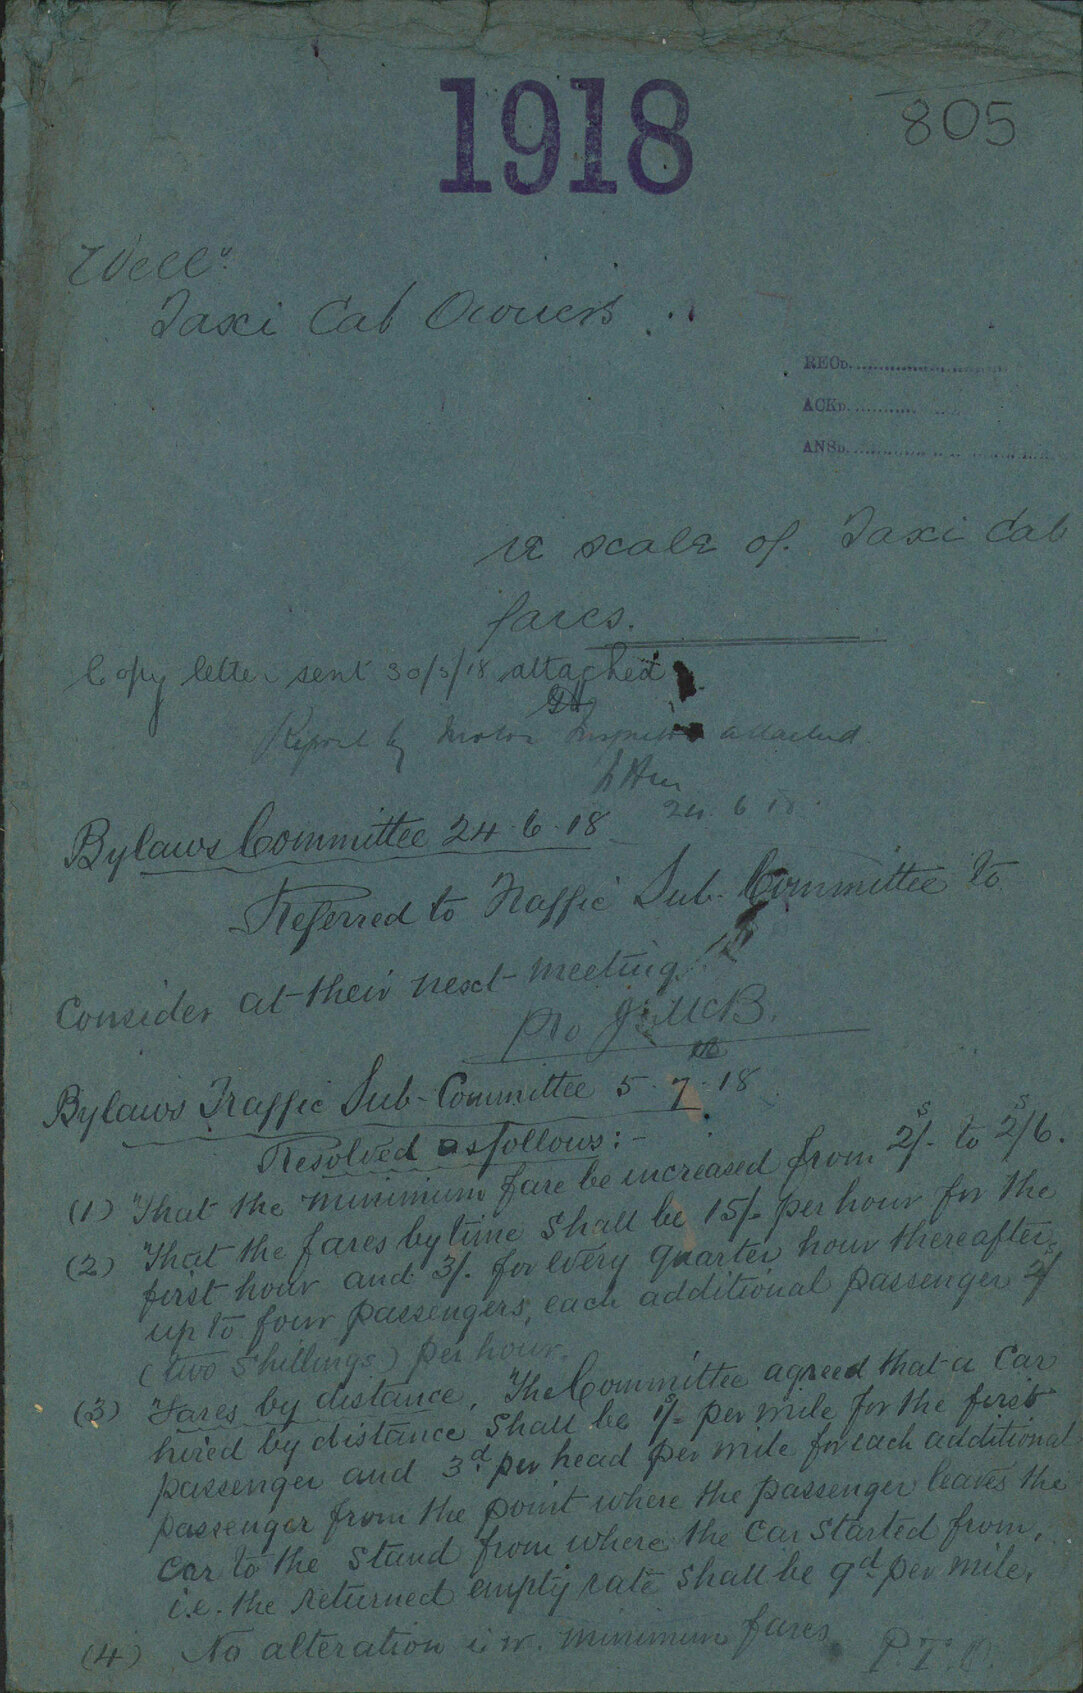 1918
805
Well"
Taxi Cab Owners
RECD.
ACKD.
ANSD.
re scale of Taxi Cab
fares.
Copy letter sent 30/5/18 attached
Report by Motor Inspector attached
24.6.18.
Bylaws Committee 24.6.18
Referred to Traffic Sub-Committee to
Consider at their next meeting.
pro J. McB.
Bylaws Traffic Sub-Committee 5.7.18
Resolved as follows:-
(1) "That the minimum fare be increased from 2s/- to 2s/6.
(2) "That the fares by time shall be 15/- per hour for the
first hour and 3/- for every quarter hour thereafter,
up to four passengers, each additional passenger 2/
(two shillings) per hour.
(3) "Fares by distance, "The Committee agreed that a Car
hired by distance shall be 1/- per mile for the first
passenger and 3d per head per mile for each additional
passenger from the point where the passenger leaves the
car to the stand from where the car started from,
i.e. the returned empty rate shall be 9d per mile,
(4) No alteration i.w. minimum fares
P.T.O.